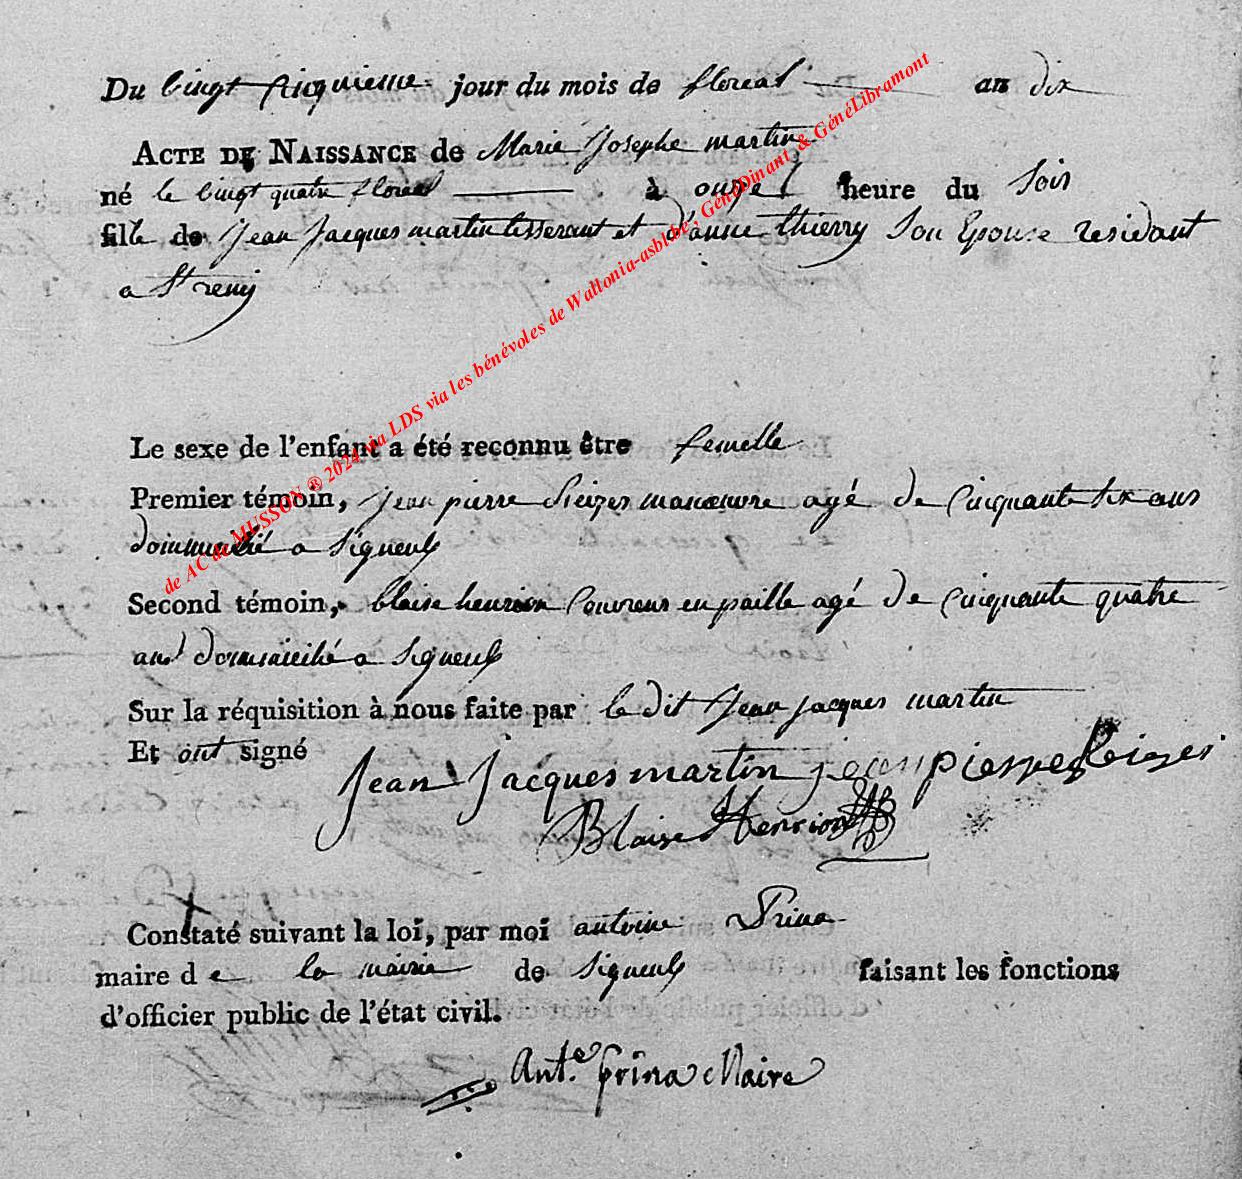 Du vingt cinquieme jour du mois de floreal an dix
ACTE DE NAISSANCE de Marie Josephe martin
né le vingt quatre floreal à onze heure du soir
fille de jean jacques martin tisserant et d'anne thierry son Epouse residant
a St remy
Le sexe de l'enfant a été reconnu être femelle
Premier témoin, jean pierre manœuvre agé de cinquante six ans
domicilié a Signeulx
Second témoin, blaise henrion couvreur en paille agé de cinquante quatre
ans domicilié a Signeulx
Sur la réquisition à nous faite par le dit jean jacques martin
Et ont signé
Jean Jacques martin jean pierre
Blaise Henrion
Constaté suivant la loi, par moi antoine Prina
maire de la mairie de Signeulx faisant les fonctions
d'officier public de l'état civil.
Ant.e prina Maire
de AC de MUSSON ® 2024 via LDS via les bénévoles de Wallonia-asbl.be, GénéDinant & GénéLibramont